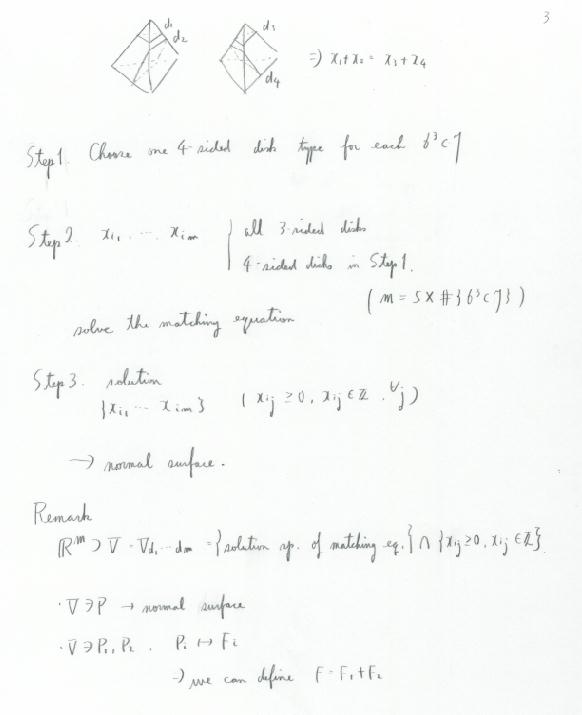 3
d₁
d₂
d₃
d₄
⇒ x₁+x₂ = x₃+x₄
Step 1. Choose one 4-sided disk type for each σ³⊂T
Step 2. x_{i1} ... x_{im} { all 3-sided disks
4-sided disks in Step 1.
( m = 5 × #{σ³⊂T} )
solve the matching equation
Step 3. solution
{x_{i1} ... x_{im}} ( x_{ij} ≥ 0, x_{ij} ∈ ℤ, ∀j )
→ normal surface.
Remark
ℝ^m ⊃ V = V_{d₁...dm} = {solution sp. of matching eq.} ∩ {x_{ij} ≥ 0, x_{ij} ∈ ℤ}
· V ∋ P → normal surface
· V ∋ P₁, P₂. P_i ↔ F_i
⇒ we can define F = F₁+F₂